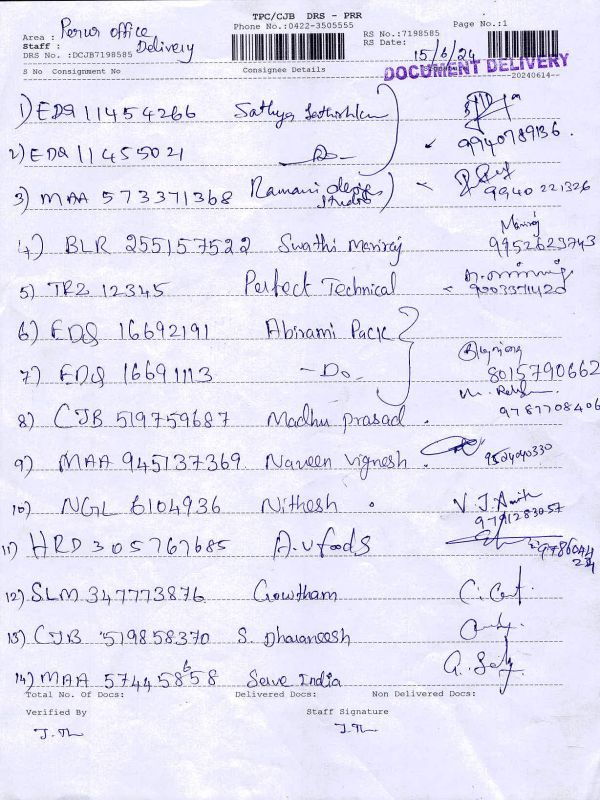 TPC/CJB DRS - PRR
Phone No.:0422-3505555
Page No.:1
Area : Perur office
Staff : Delivery
DRS No. :DCJB7198585
RS No.:7198585
RS Date: 15/6/24
DOCUMENT DELIVERY
S No Consignment No Consignee Details
--20240614--
1) EDQ 11454266 Sathya Sathishkumar
2) EDQ 11455021 -Do- 9940789136.
3) MAA 573371368 Ramani designs studios 9940 221326
4) BLR 255157522 Swathi Maniraj Maniraj 9952623743
5) TRZ 12345 Perfect Technical
6) EDQ 16692191 Abirami Pack
7) EDQ 16691113 -Do- 8015790662
8) CJB 519759687 Madhu prasad. 9787708406
9) MAA 945137369. Naveen Vignesh.
10) NGL 6104936 Nithesh. 9791283057
11) HRD 305767685 A.V foods
12) SLM 347773876 Gowtham
13) CJB 519858370 S. Dharaneesh
14) MAA 5744 5858 Serve India
Total No. Of Docs: Delivered Docs: Non Delivered Docs:
Verified By Staff Signature